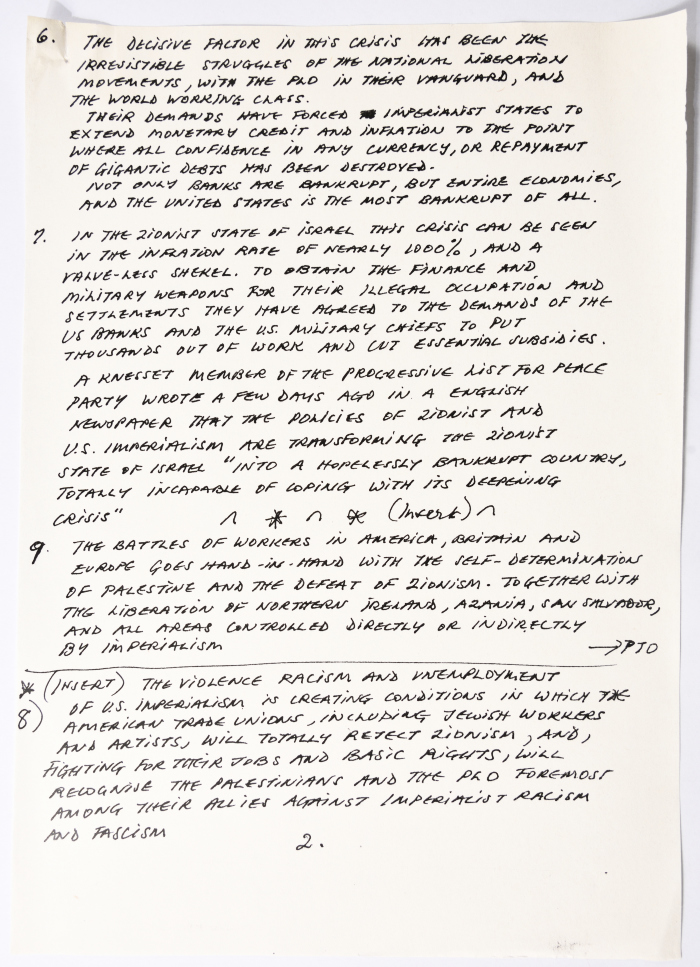 6. THE DECISIVE FACTOR IN THIS CRISIS HAS BEEN THE
IRRESISTIBLE STRUGGLES OF THE NATIONAL LIBERATION
MOVEMENTS, WITH THE PLO IN THEIR VANGUARD, AND
THE WORLD WORKING CLASS.
THEIR DEMANDS HAVE FORCED IMPERIALIST STATES TO
EXTEND MONETARY CREDIT AND INFLATION TO THE POINT
WHERE ALL CONFIDENCE IN ANY CURRENCY, OR REPAYMENT
OF GIGANTIC DEBTS HAS BEEN DESTROYED.
NOT ONLY BANKS ARE BANKRUPT, BUT ENTIRE ECONOMIES,
AND THE UNITED STATES IS THE MOST BANKRUPT OF ALL.
7. IN THE ZIONIST STATE OF ISRAEL THIS CRISIS CAN BE SEEN
IN THE INFLATION RATE OF NEARLY 1000%, AND A
VALUE-LESS SHEKEL. TO OBTAIN THE FINANCE AND
MILITARY WEAPONS FOR THEIR ILLEGAL OCCUPATION AND
SETTLEMENTS THEY HAVE AGREED TO THE DEMANDS OF THE
US BANKS AND THE U.S. MILITARY CHIEFS TO PUT
THOUSANDS OUT OF WORK AND CUT ESSENTIAL SUBSIDIES.
A KNESSET MEMBER OF THE PROGRESSIVE LIST FOR PEACE
PARTY WROTE A FEW DAYS AGO IN A ENGLISH
NEWSPAPER THAT THE POLICIES OF ZIONIST AND
U.S. IMPERIALISM ARE TRANSFORMING THE ZIONIST
STATE OF ISRAEL "INTO A HOPELESSLY BANKRUPT COUNTRY,
TOTALLY INCAPABLE OF COPING WITH ITS DEEPENING
CRISIS" * * (Insert)
9. THE BATTLES OF WORKERS IN AMERICA, BRITAIN AND
EUROPE GOES HAND-IN-HAND WITH THE SELF-DETERMINATION
OF PALESTINE AND THE DEFEAT OF ZIONISM. TOGETHER WITH
THE LIBERATION OF NORTHERN IRELAND, AZANIA, SAN SALVADOR,
AND ALL AREAS CONTROLLED DIRECTLY OR INDIRECTLY
BY IMPERIALISM → PTO
* (INSERT) THE VIOLENCE RACISM AND UNEMPLOYMENT
8) OF U.S. IMPERIALISM IS CREATING CONDITIONS IN WHICH THE
AMERICAN TRADE UNIONS, INCLUDING JEWISH WORKERS
AND ARTISTS, WILL TOTALLY REJECT ZIONISM, AND,
FIGHTING FOR THEIR JOBS AND BASIC RIGHTS, WILL
RECOGNISE THE PALESTINIANS AND THE PLO FOREMOST
AMONG THEIR ALLIES AGAINST IMPERIALIST RACISM
AND FASCISM
2.